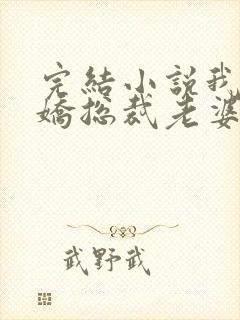 完結小說我
嬌總裁老婆
武野武